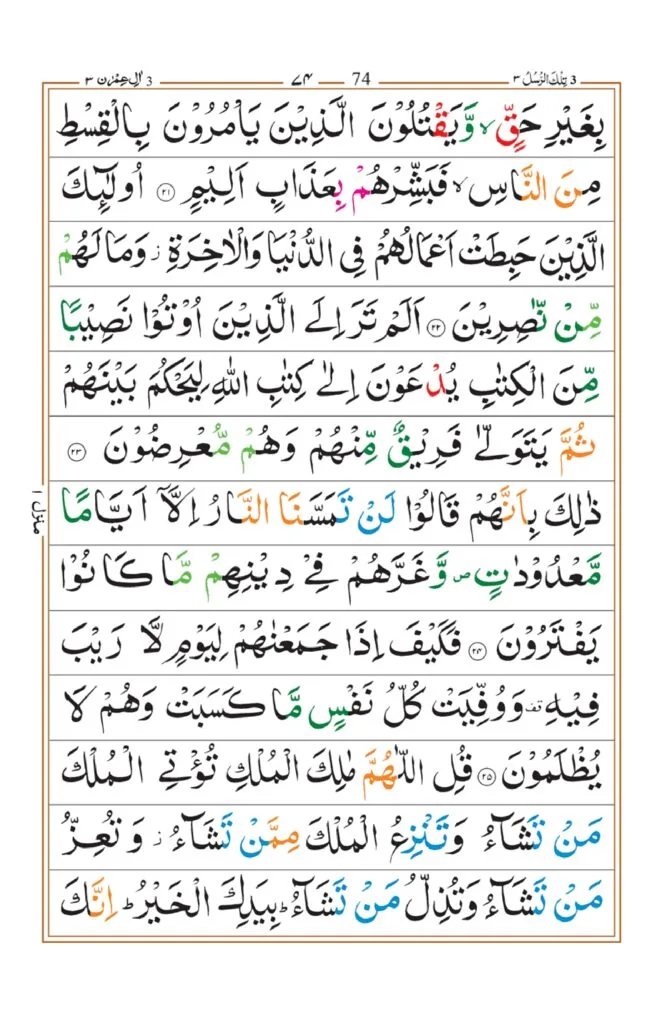 3 تِلْكَ الرُّسُلُ ٣
74 ۷۴
3 اٰلِ عِمْرٰن ٣
بِغَيْرِ حَقٍّ ۙ وَّيَقْتُلُوْنَ الَّذِيْنَ يَاْمُرُوْنَ بِالْقِسْطِ
مِنَ النَّاسِ ۙ فَبَشِّرْهُمْ بِعَذَابٍ اَلِيْمٍ ۲۱ اُولٰٓئِكَ
الَّذِيْنَ حَبِطَتْ اَعْمَالُهُمْ فِى الدُّنْيَا وَالْاٰخِرَةِ ؗ وَمَا لَهُمْ
مِّنْ نّٰصِرِيْنَ ۲۲ اَلَمْ تَرَ اِلَى الَّذِيْنَ اُوْتُوْا نَصِيْبًا
مِّنَ الْكِتٰبِ يُدْعَوْنَ اِلٰى كِتٰبِ اللّٰهِ لِيَحْكُمَ بَيْنَهُمْ
ثُمَّ يَتَوَلّٰى فَرِيْقٌ مِّنْهُمْ وَهُمْ مُّعْرِضُوْنَ ۲۳
ذٰلِكَ بِاَنَّهُمْ قَالُوْا لَنْ تَمَسَّنَا النَّارُ اِلَّاۤ اَيَّامًا
مَّعْدُوْدٰتٍ ص وَّغَرَّهُمْ فِيْ دِيْنِهِمْ مَّا كَانُوْا
يَفْتَرُوْنَ ۲۴ فَكَيْفَ اِذَا جَمَعْنٰهُمْ لِيَوْمٍ لَّا رَيْبَ
فِيْهِ قف وَوُفِّيَتْ كُلُّ نَفْسٍ مَّا كَسَبَتْ وَهُمْ لَا
يُظْلَمُوْنَ ۲۵ قُلِ اللّٰهُمَّ مٰلِكَ الْمُلْكِ تُؤْتِى الْمُلْكَ
مَنْ تَشَآءُ وَتَنْزِعُ الْمُلْكَ مِمَّنْ تَشَآءُ ؗ وَتُعِزُّ
مَنْ تَشَآءُ وَتُذِلُّ مَنْ تَشَآءُ ؕ بِيَدِكَ الْخَيْرُ ؕ اِنَّكَ
منزل ۱